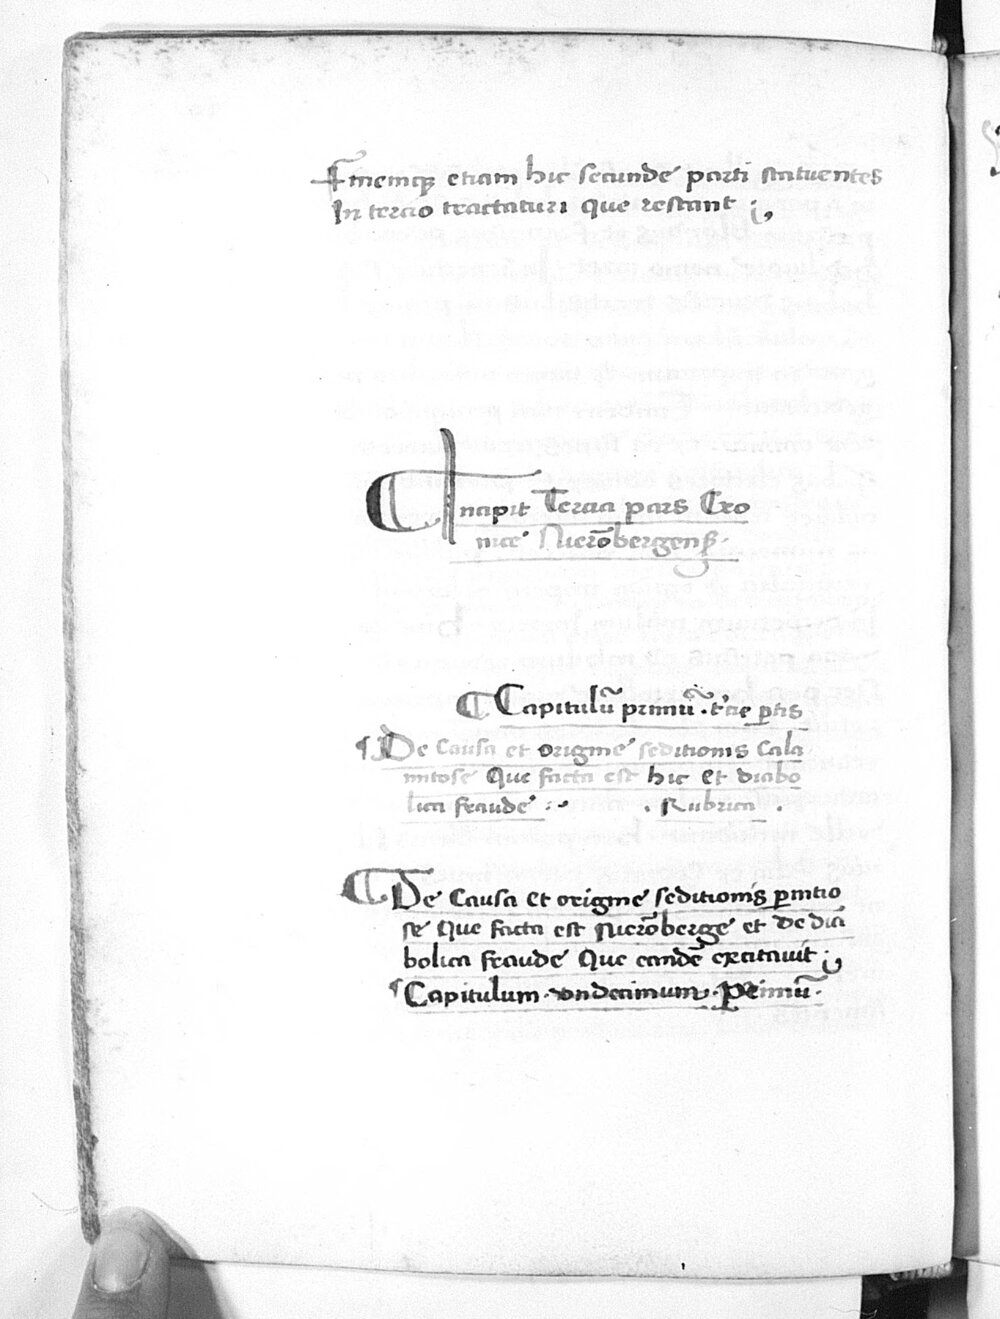 Finemq̃ etiam hic secunde parti statuentes
In tercio tractaturi que restant ;,
¶ Incipit Tercia pars Cro
nice Nierõbergenß.
¶ Capitulũ primũ . t̃cie ꝑtis
¶ De Causa et origine seditionis Cala
mitose Que facta est hic et diabo
lica fraude :~ . Rubrica .
¶ De Causa et origine seditionis ꝑnitio
se Que facta est Nierõberge et de dia
bolica fraude Que eandẽ excitauit ;,
¶ Capitulum . vndecimum . Primũ .